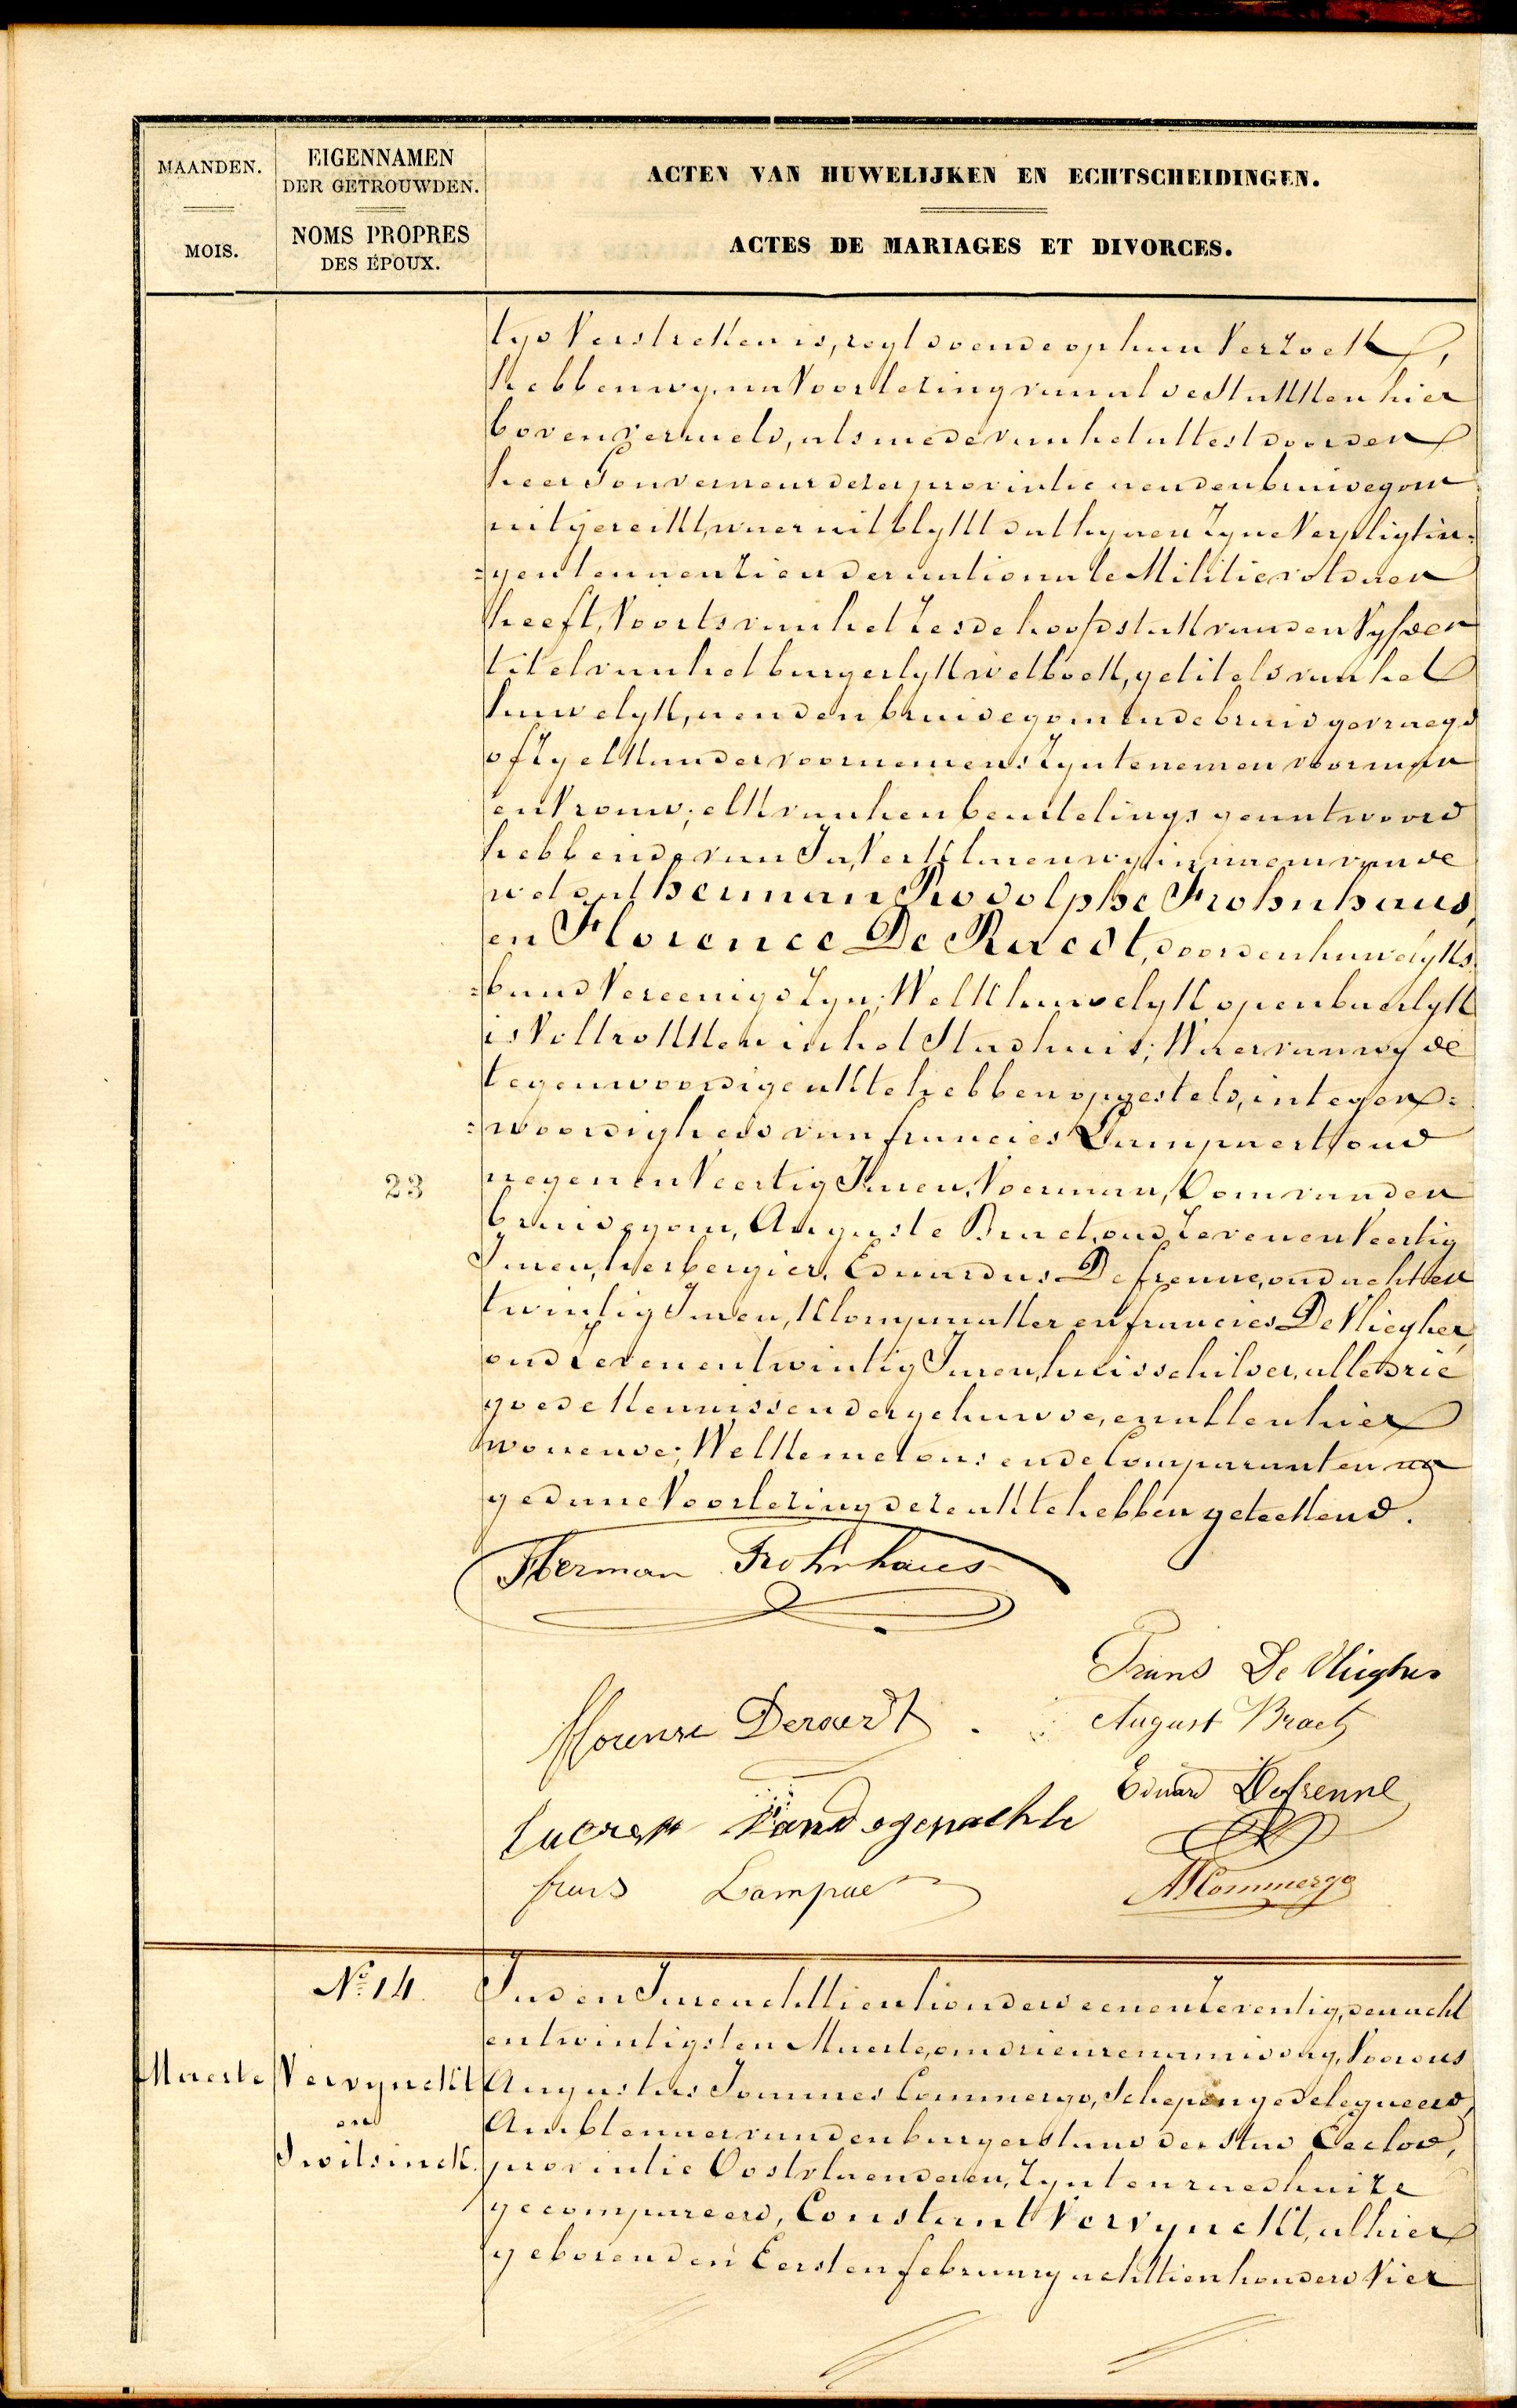 MAANDEN.
MOIS.
EIGENNAMEN
DER GETROUWDEN.
NOMS PROPRES
DES ÉPOUX.
ACTEN VAN HUWELIJKEN EN ECHTSCHEIDINGEN.
ACTES DE MARIAGES ET DIVORCES.
tyd Verstreken is, regt doende op hun Verzoek,
hebben wy, na Voorlezing van al de Stukken hier
boven vermeld, alsmede van het attest door den
heer Gouverneur dezer provintie aen den bruidegom
uitgereikt, waer uit blykt dat hy aen Zyne Verpligtin=
=gen ten aenzien der nationale Militie voldaen
heeft, Voorts van het Zesde hoofdstuk van den Vyfden
titel van het burgerlyk wetboek, getiteld van het
huwelyk, aen den bruidegom en de bruid gevraegd
of Zy elkander voornemens Zyn te nemen voor man
en Vrouw; elk van hen beurtelings geantwoord
hebbende van Ja, Verklaren wy in naem van de
wet dat herman Rodolphe Frohnhaus,
en Florence De Raedt, door den huwelyks
=band Vereenigd Zyn; Welk huwelyk openbaerlyk
is Voltrokken in het Stadhuis; Waervan wy de
tegenwoordige akte hebben opgesteld, in tegen=
=woordigheid van francies Lampaert, oud
23
negen en Veertig Jaren, Voerman, Oom van den
bruidegom, Auguste Braet, oud Zeven en Veertig
Jaren, herbergier, Eduardus Defrenne, oud acht en
twintig Jaren, Klompmaker en francies De Vliegher,
oud Zeven en twintig Jaren, huisschilder, alle drie
goede Kennissen der gehuwde, en allen hier
wonende; Welke met ons en de Comparanten na
gedane Voorlezing dezer akte hebben geteekend.
Herman Frohnhaus
Frans De Vliegher
Florense Deraedt
August Braet
Eduard Defrenne
frans Lampae
A Commergo
Nº 14.
Maerte
Vervynckt
en
Switsinck.
In den Jare achttien honderd een en Zeventig, den acht
en twintigsten Maerte, om drie uren namiddag, Voor ons
Augustus Joannes Commergo, Schepen gedelegueerd,
Ambtenaer van den burgerstand der stad Eecloo,
provintie Oostvlaenderen, Zyn ten raedhuize
gecompareerd, Constant Vervynckt, alhier
geboren den Eersten february achttien honderd Vier